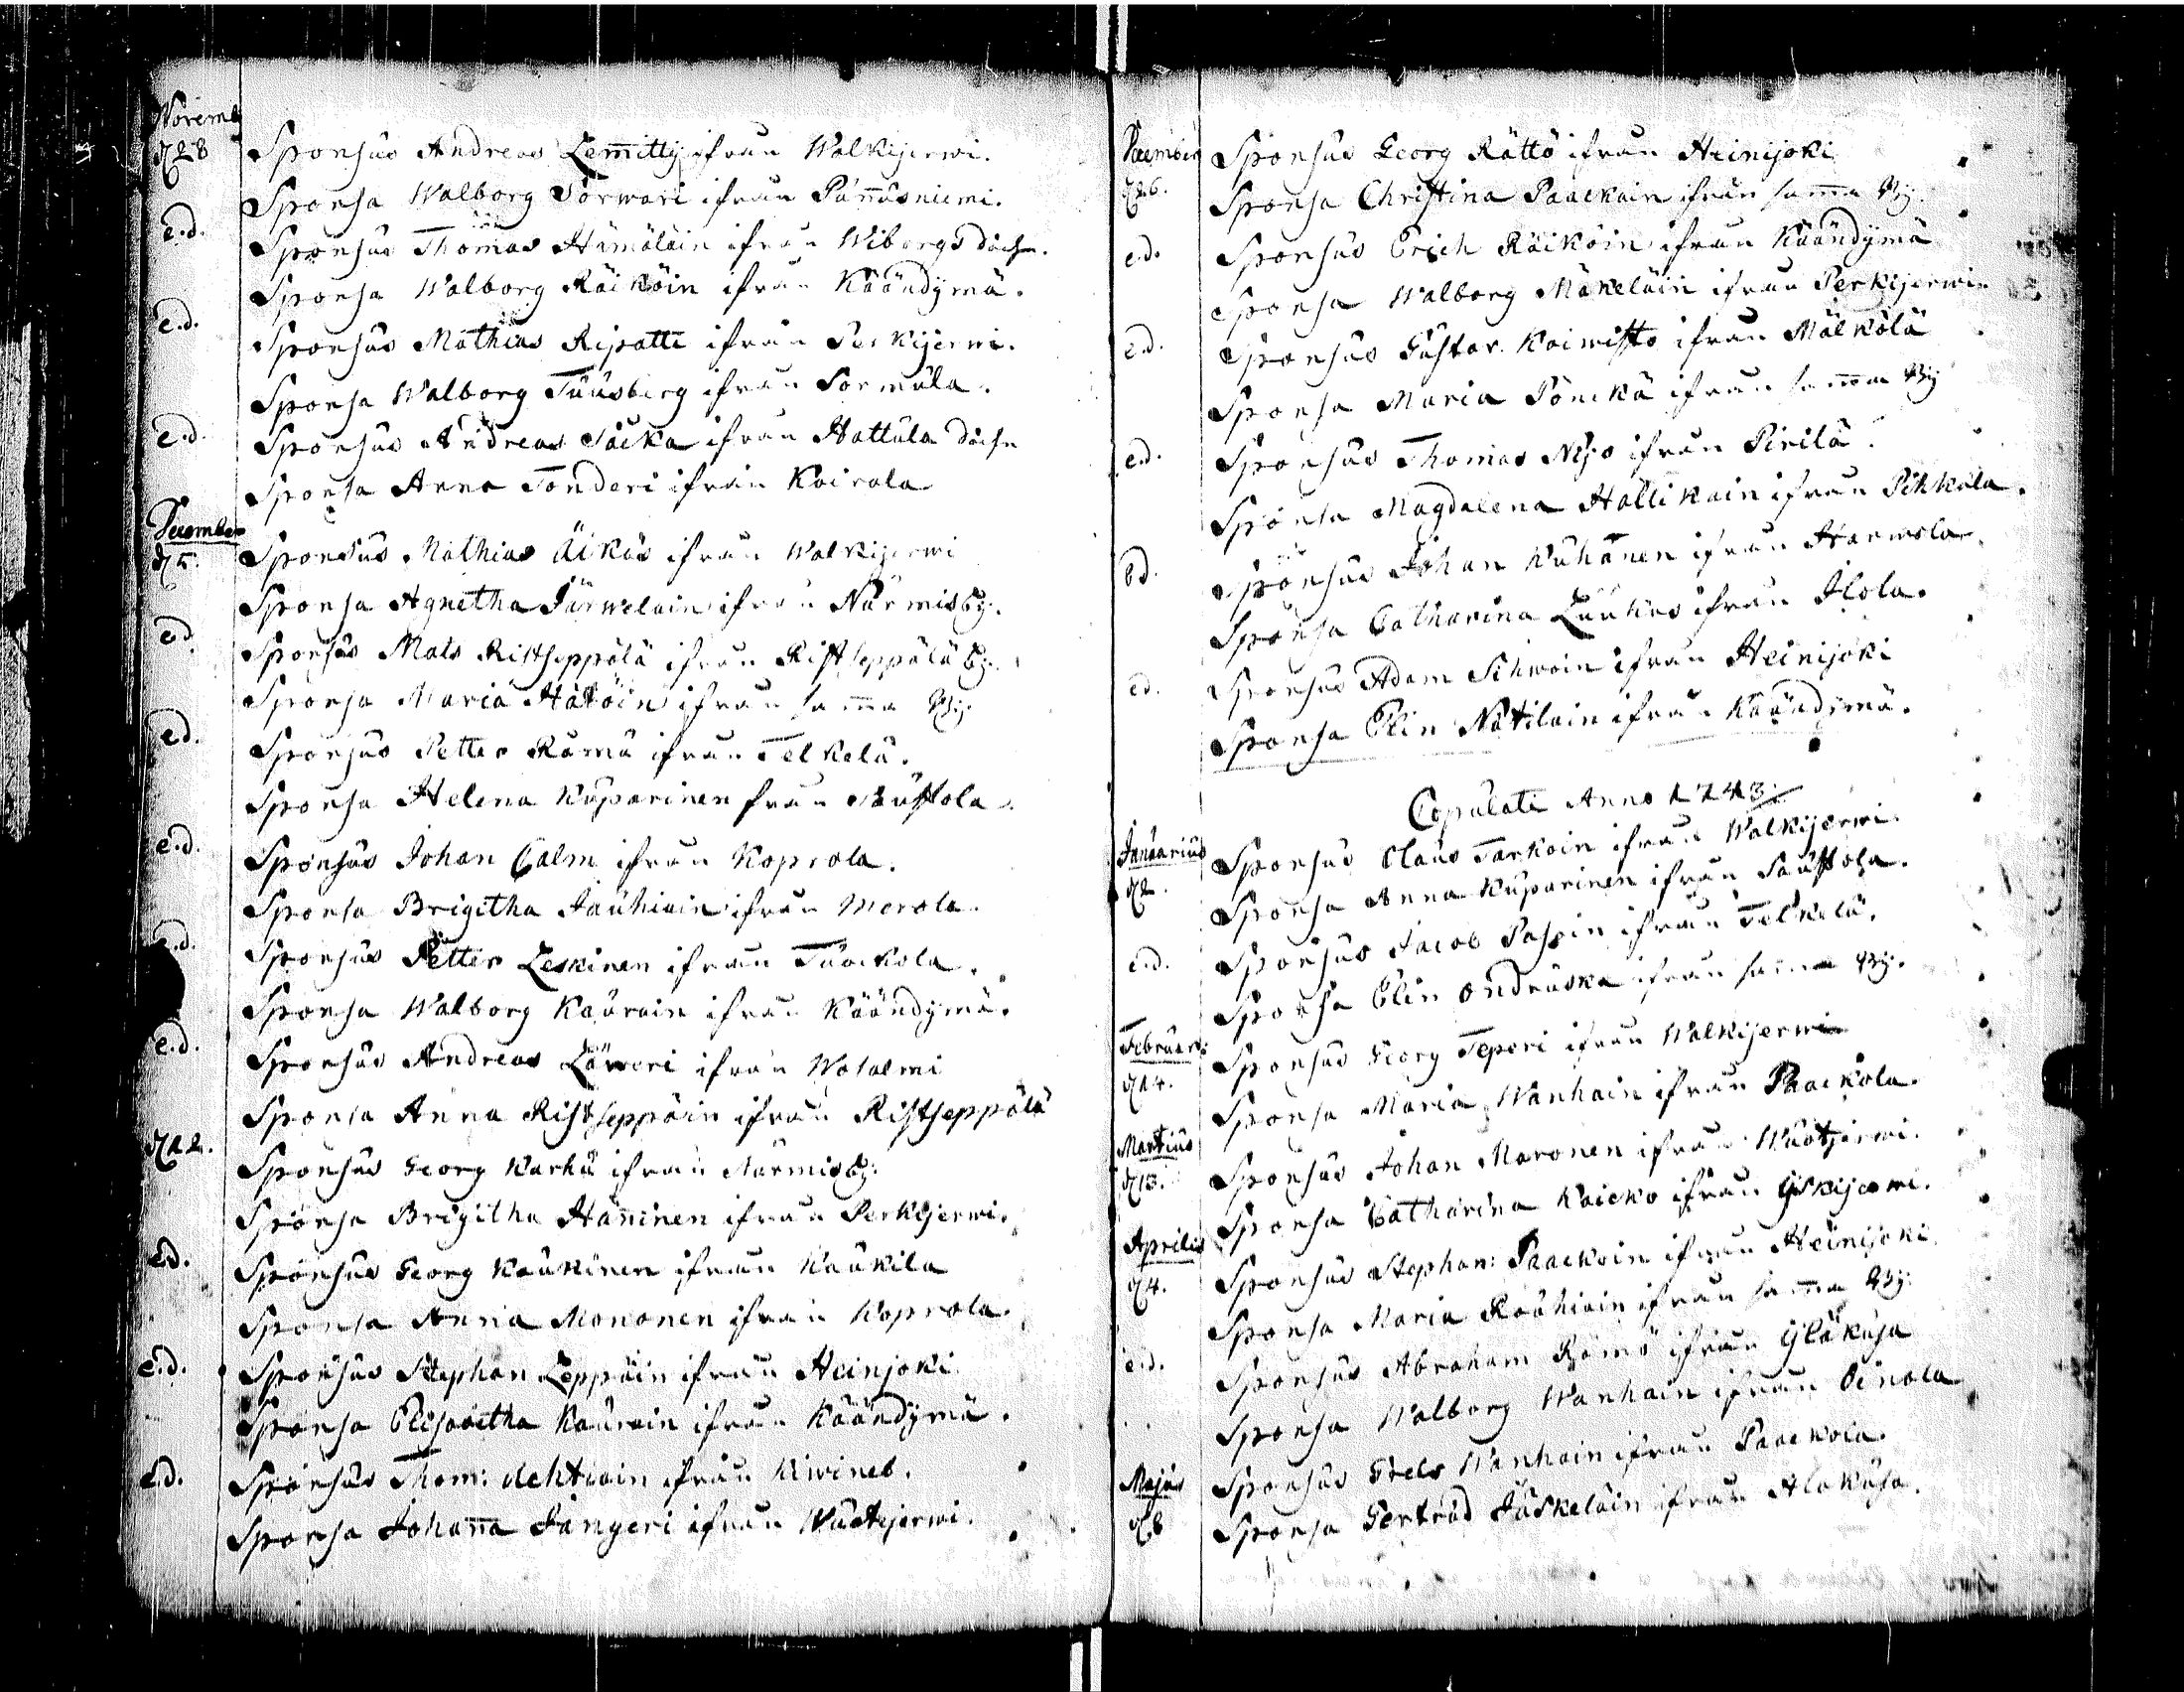 Novemb
d 28 Sponsus Andreas Lemitty ifrån Walkijerwi.
Sponsa Walborg Sorwari ifrån Pannusniemi.
e.d. Sponsus Thomas Hämäläin ifrån Wiborgs Sochn.
Sponsa Walborg Räiköin ifrån Käändymä.
e.d. Sponsus Mathias Ripatti ifrån Perkijerwi.
Sponsa Walborg Tuusberg ifrån Sormula.
e.d. Sponsus Andreas Säcka ifrån Hattula Sochn
Sponsa Anna Tonderi ifrån Kairala
December
d 5. Sponsus Mathias Äikäs ifrån Walkijerwi
Sponsa Agnetha Järweläin ifrån Nurmisby.
e.d. Sponsus Mats Ristseppälä ifrån Ristseppälä by.
Sponsa Maria Hätöin ifrån samma By.
e.d. Sponsus Petter Rämä ifrån Telkelä.
Sponsa Helena Kuparinen från Kaustola.
e.d. Sponsus Johan Calm ifrån Koprola.
Sponsa Brigitha Jauhiain ifrån Merola.
e.d. Sponsus Petter Leskinen ifrån
Sponsa Walborg Kaurain ifrån Käändymä.
e.d. Sponsus Andreas Läweri ifrån
Sponsa Anna Ristseppäin ifrån Ristseppälä
d 12. Sponsus Georg Karhu ifrån Nurmisby:
Sponsa Brigitha Häninen ifrån Perkijerwi.
e.d. Sponsus Georg Kaukinen ifrån Kaukila
Sponsa Anna Mononen ifrån Koprola.
e.d. Sponsus Stephan Leppäin ifrån Heinjoki.
Sponsa Elisabetha Kaurain ifrån Käändymä.
e.d. Sponsus Thom: ifrån Kiwineb.
Sponsa Johanna Jangeri ifrån
December Sponsus Georg Rättö ifrån Heinijoki
d 26. Sponsa Christina Paackain ifrån samma By.
e.d. Sponsus Erich Räiköin ifrån Käändymä
Sponsa Walborg Mäkeläin ifrån Perkijerwi.
e.d. Sponsus Gustav. Koiwisto ifrån Mälkölä
Sponsa Maria Pönckä ifrån samma By
e.d. Sponsus Thomas ifrån Pirilä.
Sponsa Magdalena Hallikain ifrån Pihkala.
e.d. Sponsus Johan Kuhanen ifrån
Sponsa Catharina Luukas ifrån Ilola.
e.d. Sponsus Adam Sihwoin ifrån Heinijoki
Sponsa Elin Nätiläin ifrån Käändymä.
Copulati Anno 1743:
Januarius Sponsus Claus Tarkoin ifrån Walkijerwi.
d 2. Sponsa Anna Kuparinen ifrån
e.d. Sponsus Jacob ifrån Telkelä.
Sponsa Elin Ondruska ifrån samma By.
Februari: Sponsus Georg Teperi ifrån Walkijerwi
d 14. Sponsa Maria Wanhain ifrån Paackola.
Martius Sponsus Johan Maronen ifrån
d 13. Sponsa Catharina Kaicko ifrån
Aprilis Sponsus Stephan: Paackoin ifrån Heinijoki.
d 4. Sponsa Maria Rauhiain ifrån samma By:
e.d. Sponsus Abraham Rämö ifrån Yläkusa
Sponsa Walborg Wanhain ifrån Oinala
Majus Sponsus Wanhain ifrån Paackola.
d 8 Sponsa Gertrud Jäskeläin ifrån Alakusa.